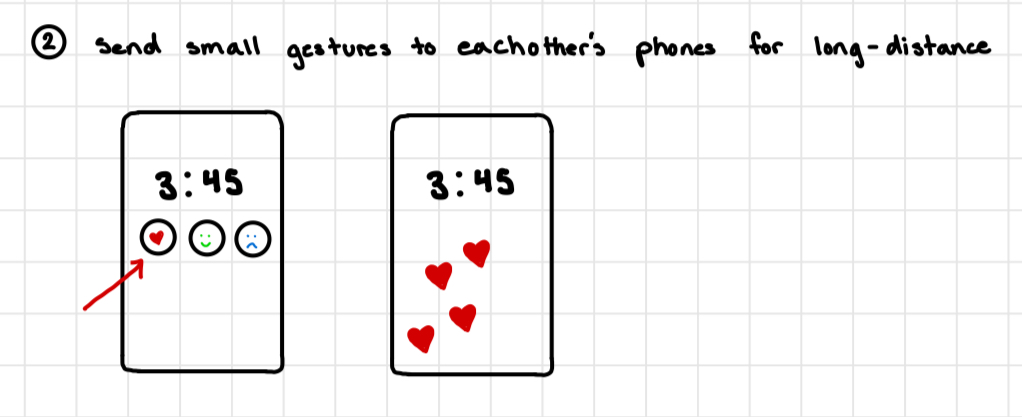 ② Send small gestures to eachother's phones for long-distance
3:45 3:45